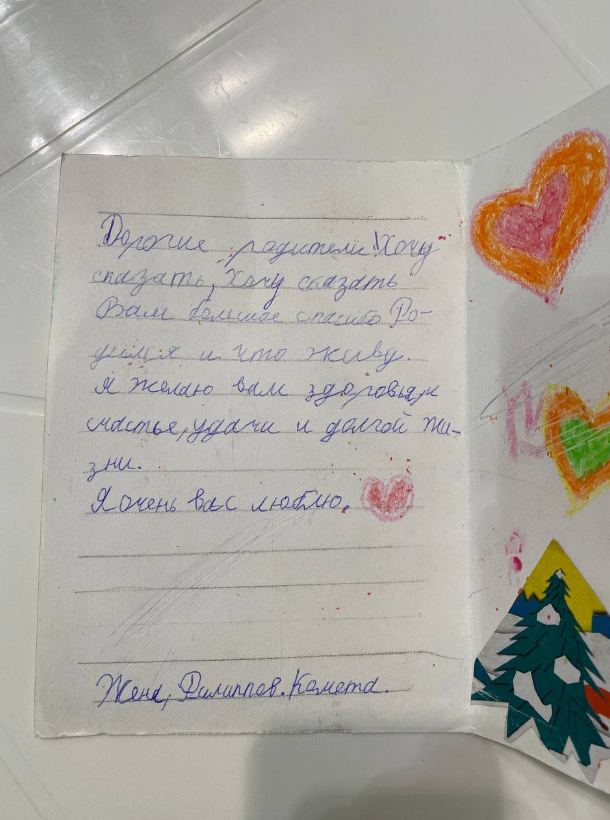 Дорогие родители! Хочу
сказать, Хочу сказать
Вам большое спасибо Ро-
дился и что живу.
Я желаю вам здоровья,
счастье, удачи и долгой жи-
зни.
Я очень вас люблю.
Женя, Филиппов. Комета.